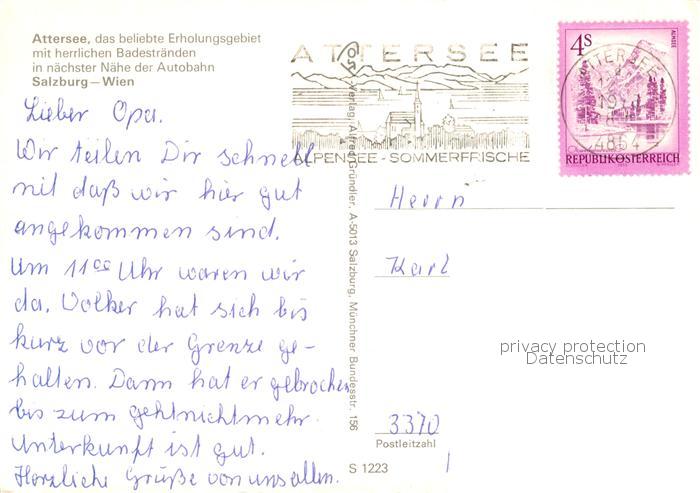 Attersee, das beliebte Erholungsgebiet
mit herrlichen Badestränden
in nächster Nähe der Autobahn
Salzburg—Wien
Lieber Opa.
Wir teilen Dir schnell
mit daß wir hier gut
angekommen sind.
Um 11oo Uhr waren wir
da. Volker hat sich bis
kurz vor der Grenze ge-
halten. Dann hat er gebrochen
bis zum gehtnichtmehr.
Unterkunft ist gut.
Herzliche Grüße von uns allen.
Verlag Alfred Gründler, A-5013 Salzburg, Münchner Bundesstr. 156
ATTERSEE
ALPENSEE-SOMMERFRISCHE
4S
ALMSEE
ATTERSEE
4864
REPUBLIK ÖSTERREICH
Herrn
Karl
privacy protection
Datenschutz
3370
Postleitzahl
S 1223